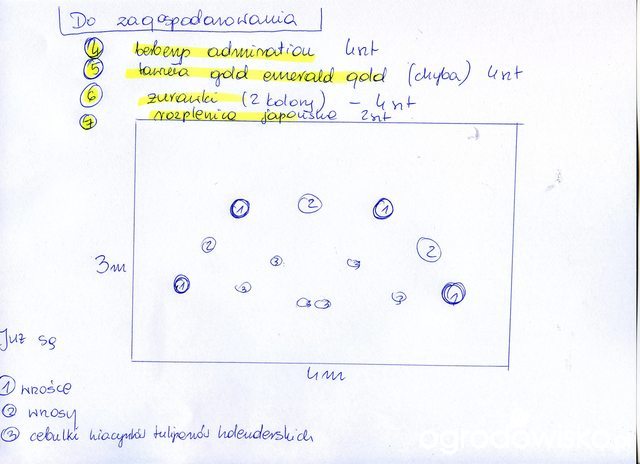 Do zagospodarowania
4 berberys admiration 4szt
5 tawuła gold emerald gold (chyba) 4szt
6 żurawki (2 kolory) - 4szt
7 rozplenica japońska 2szt
1 2 1
2 2
3 3
1 3 3 3 3 1
3m
4m
Już są
1 wrośce
2 wrzosy
3 cebulki hiacyntów tulipanów holenderskich